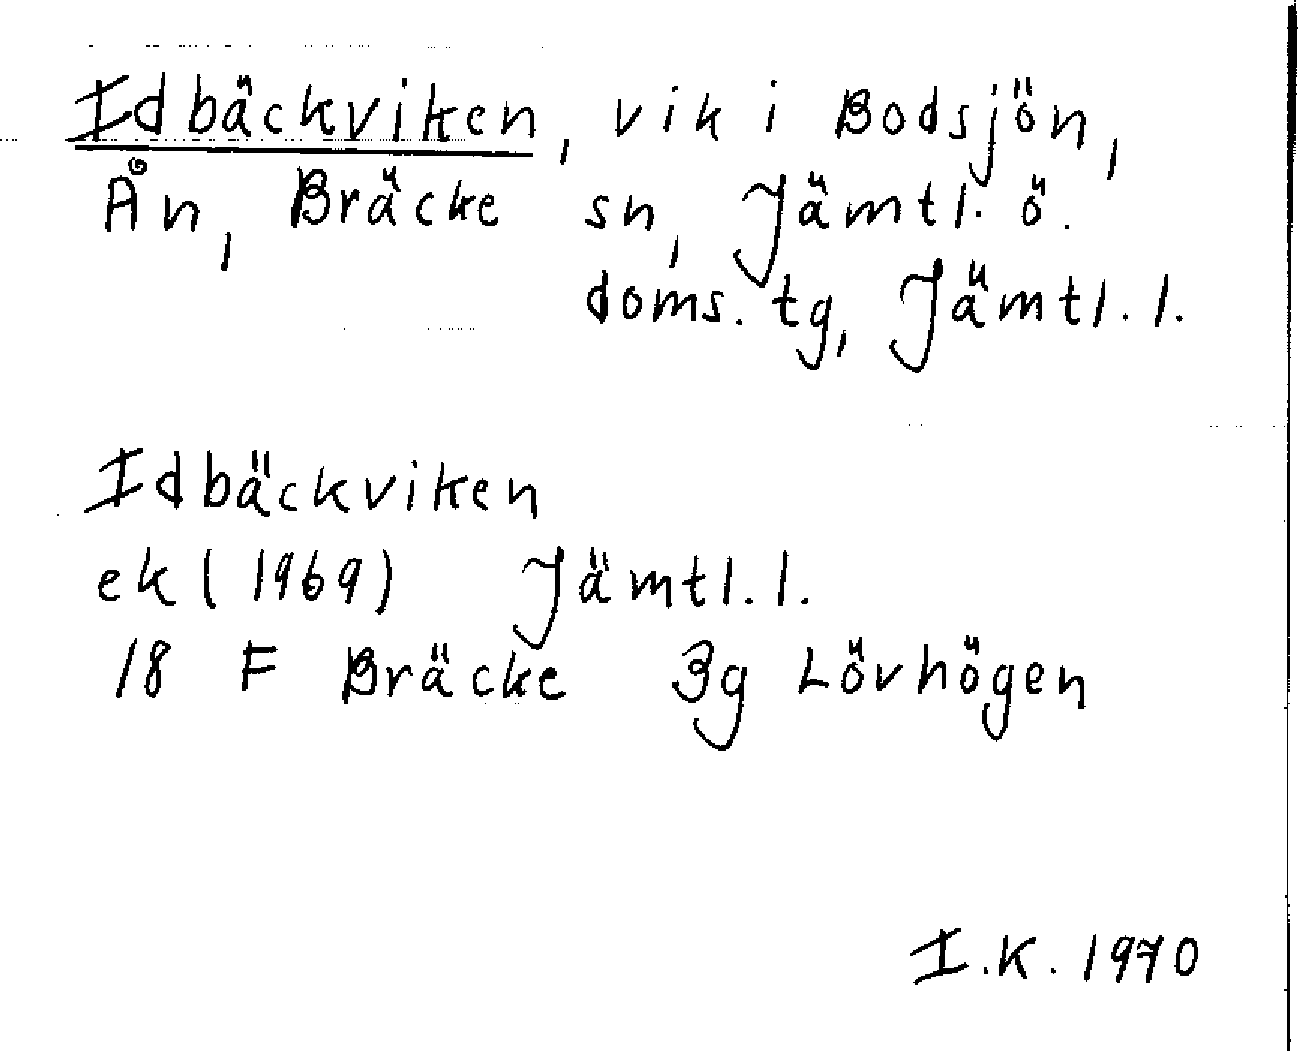 Idbäckviken, vik i Bodsjön,
Ån, Bräcke sn, Jämtl. ö.
doms. tg, Jämtl. l.
Idbäckviken
ek (1969) Jämtl. l.
18 F Bräcke 3g Lövhögen
I.K. 1970